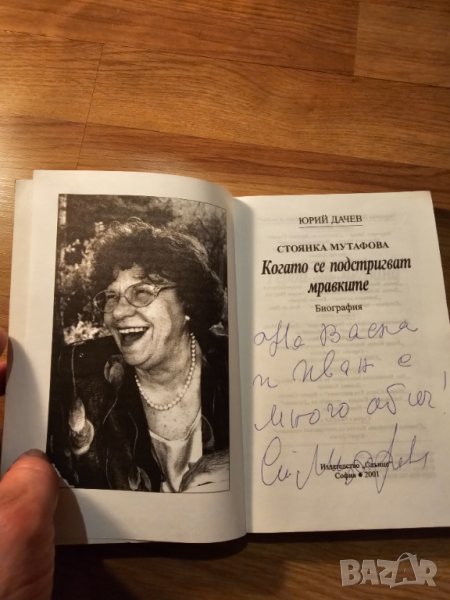 ЮРИЙ ДАЧЕВ
СТОЯНКА МУТАФОВА
Когато се подстригват
мравките
Биография
На Васка
и Иван с
много обич!
Ст. Мутафова
Издателство „Слънце“
София • 2001
BAZAR